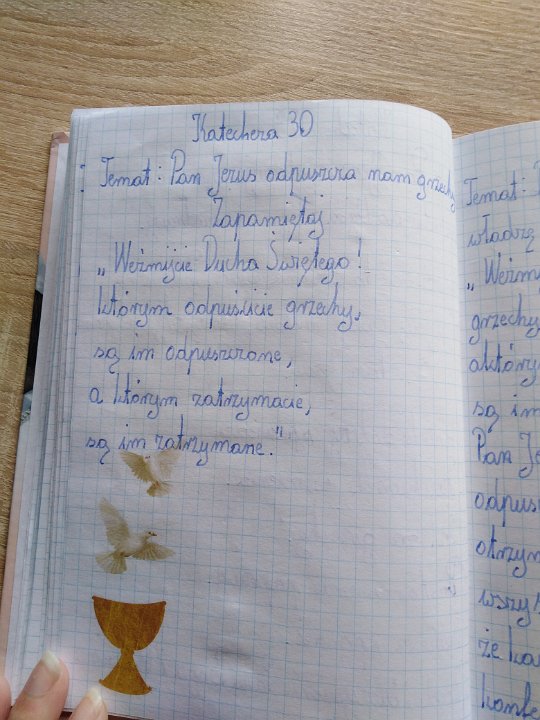 Katecheza 30
Temat: Pan Jezus odpuszcza nam grzechy
Zapamiętaj
„Weźmijcie Ducha Świętego!
którym odpuścicie grzechy,
są im odpuszczone,
a którym zatrzymacie,
są im zatrzymane."
Temat:
władzę
„Weźm
grzechy
a który
są im
Pan Je
odpus
otrzym
wszys
że ka